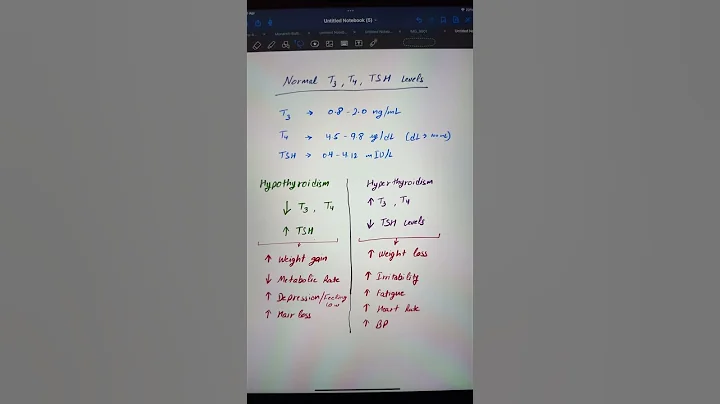 Untitled Notebook (5)
Normal T3, T4, TSH Levels
T3 → 0.8 - 2.0 ng/mL
T4 → 4.5 - 9.8 ug/dL
TSH → 0.4 - 4.12 mIU/L
Hypothyroidism
↓ T3, T4
↑ TSH
↑ Weight gain
↓ Metabolic Rate
↑ Depression/Feeling low
↑ Hair loss
Hyperthyroidism
↑ T3, T4
↓ TSH Levels
↑ Weight loss
↑ Irritability
↑ Fatigue
↑ Heart Rate
↑ BP